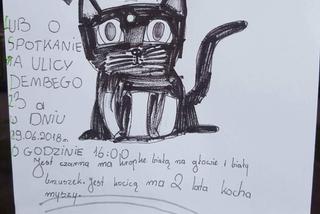 LUB O
SPOTKANIE
NA ULICY
DEMBEGO
23 a
W DNIU
29.06.2018r.
O GODZINIE 16:00
Jest czarna ma kropke białą na głowie i biały
brzuszek. Jest kocicą ma 2 lata kocha
myszy.